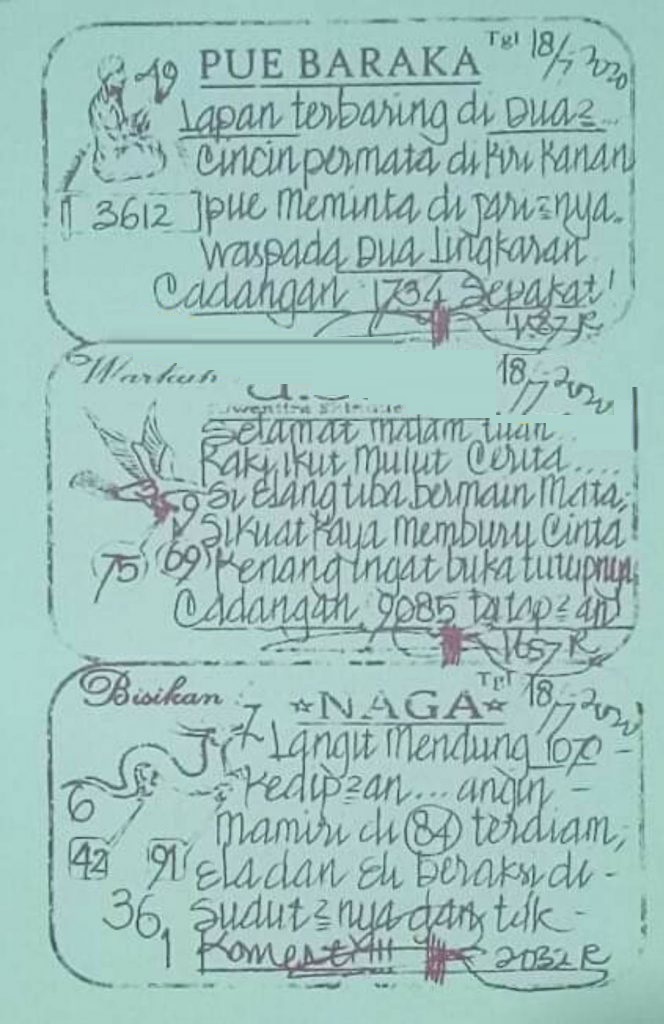 Tgl 18/7 2020
PUE BARAKA
19
Lapan terbaring di Dua2...
Cincin permata di Kiri Kanan
3612
pue Meminta di jari2nya.
Waspada Dua Lingkaran
Cadangan 1734 Sepakat!
R
18/7 2020
Warkah
Selamat malam tuan..
Kaki ikut Mulut Cerita....
Si Elang tiba bermain Mata,
9
Sikuat Kaya Memburu Cinta
75 69
Kenang ingat buka tutupnya
Cadangan 9085 Tatap2an
1657 R
Bisikan
Tgl 18/7 2020
☆NAGA☆
7
Langit Mendung 1070 -
Kedip2an... angin -
6
Mamiri di 84 terdiam,
42 91
Ela dan Eli beraksi di -
36
Sudut2nya dan titik -
1
2032 R